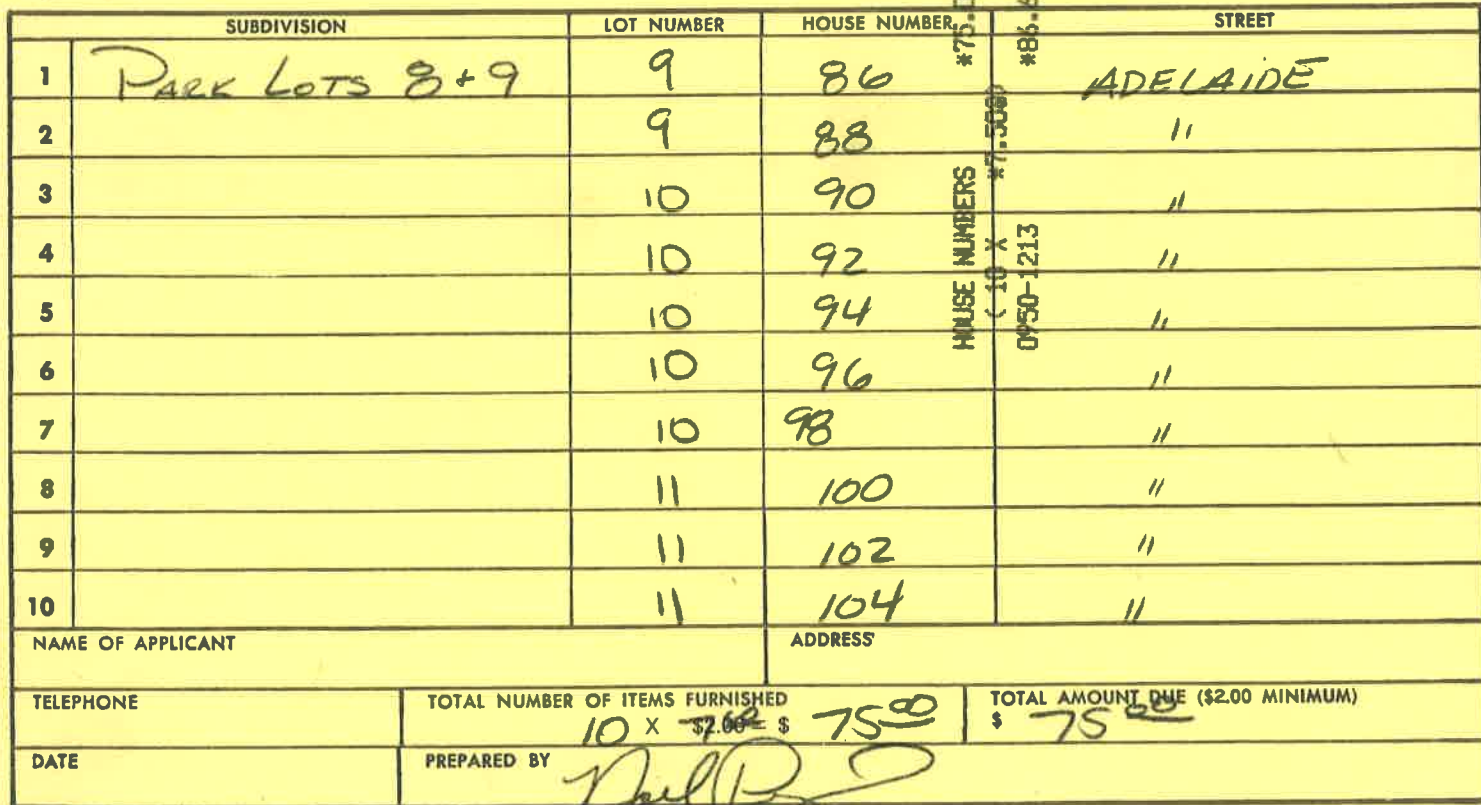 SUBDIVISION LOT NUMBER HOUSE NUMBER STREET
1 PARK LOTS 8+9 9 86 ADELAIDE
2 9 88 "
3 10 90 "
4 10 92 "
5 10 94 "
6 10 96 "
7 10 98 "
8 11 100 "
9 11 102 "
10 11 104 "
HOUSE NUMBERS
( 10 X *7.50@)
0950-1213
NAME OF APPLICANT ADDRESS
TELEPHONE TOTAL NUMBER OF ITEMS FURNISHED TOTAL AMOUNT DUE ($2.00 MINIMUM)
10 X $2.00 = $ 75 00 $ 75 00
DATE PREPARED BY